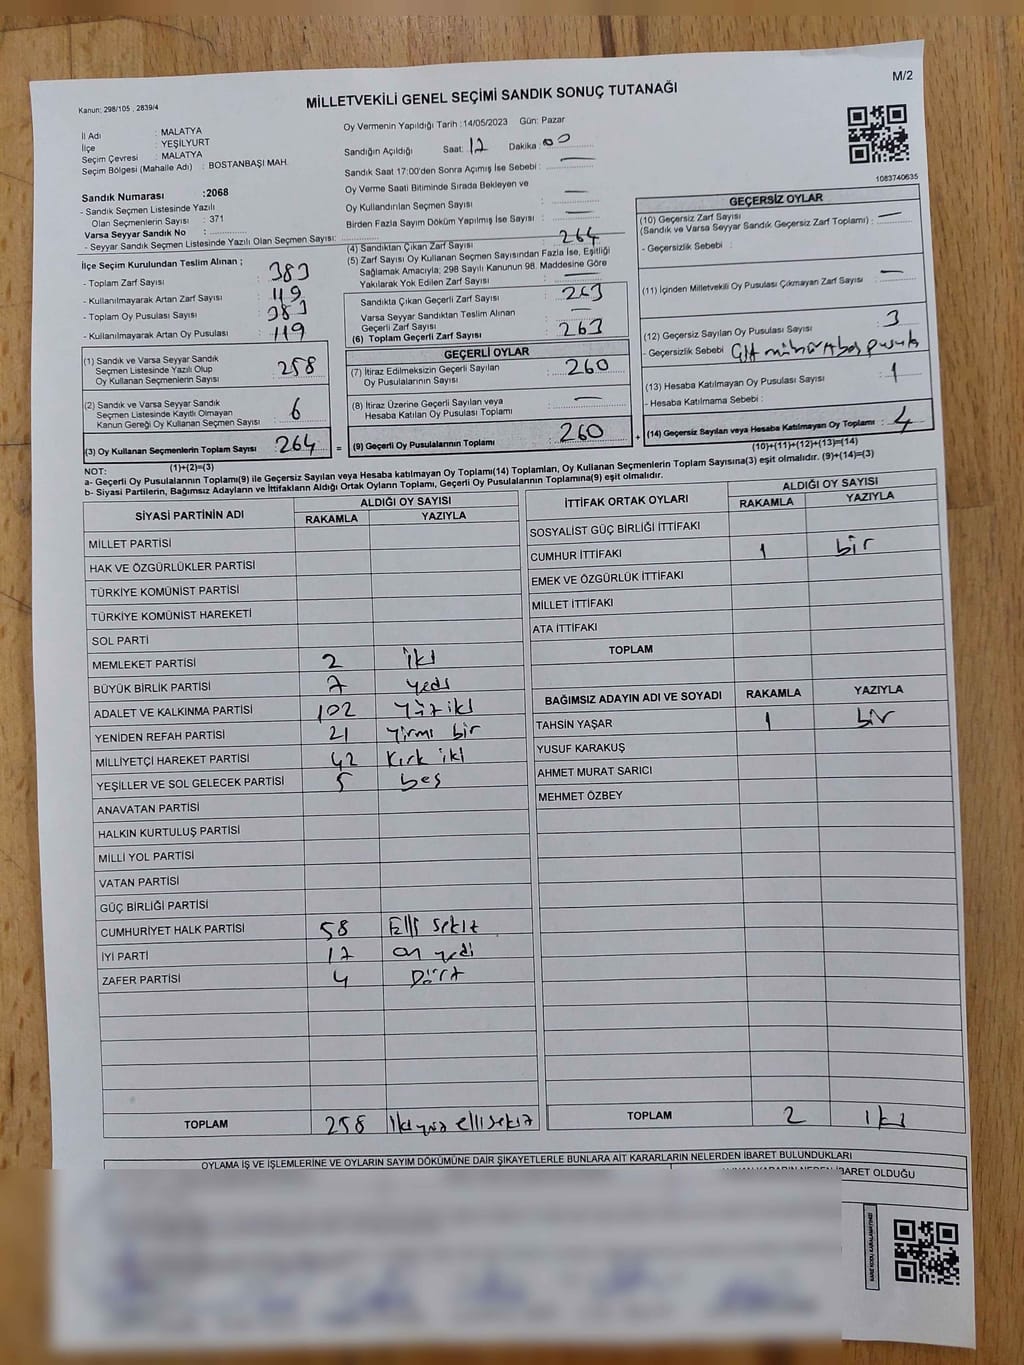 M/2
MİLLETVEKİLİ GENEL SEÇİMİ SANDIK SONUÇ TUTANAĞI
Kanun: 298/105 , 2839/4
İl Adı : MALATYA
İlçe : YEŞİLYURT
Seçim Çevresi : MALATYA
Seçim Bölgesi (Mahalle Adı) : BOSTANBAŞI MAH.
Sandık Numarası :2068
- Sandık Seçmen Listesinde Yazılı
Olan Seçmenlerin Sayısı : 371
Varsa Seyyar Sandık No :
- Seyyar Sandık Seçmen Listesinde Yazılı Olan Seçmen Sayısı:
Oy Vermenin Yapıldığı Tarih :14/05/2023 Gün: Pazar
Sandığın Açıldığı Saat: 17 Dakika: 00
Sandık Saat 17:00'den Sonra Açımış İse Sebebi : —
Oy Verme Saati Bitiminde Sırada Bekleyen ve
Oy Kullandırılan Seçmen Sayısı : —
Birden Fazla Sayım Döküm Yapılmış İse Sayısı : —
1083740635
İlçe Seçim Kurulundan Teslim Alınan ;
- Toplam Zarf Sayısı : 383
- Kullanılmayarak Artan Zarf Sayısı : 119
- Toplam Oy Pusulası Sayısı : 383
- Kullanılmayarak Artan Oy Pusulası : 119
(1) Sandık ve Varsa Seyyar Sandık
Seçmen Listesinde Yazılı Olup
Oy Kullanan Seçmenlerin Sayısı : 258
(2) Sandık ve Varsa Seyyar Sandık
Seçmen Listesinde Kayıtlı Olmayan
Kanun Gereği Oy Kullanan Seçmen Sayısı : 6
(3) Oy Kullanan Seçmenlerin Toplam Sayısı : 264 =
(1)+(2)=(3)
(4) Sandıktan Çıkan Zarf Sayısı : 264
(5) Zarf Sayısı Oy Kullanan Seçmen Sayısından Fazla İse, Eşitliği
Sağlamak Amacıyla; 298 Sayılı Kanunun 98. Maddesine Göre
Yakılarak Yok Edilen Zarf Sayısı : —
Sandıkta Çıkan Geçerli Zarf Sayısı : 263
Varsa Seyyar Sandıktan Teslim Alınan
Geçerli Zarf Sayısı : —
(6) Toplam Geçerli Zarf Sayısı : 263
GEÇERLİ OYLAR
(7) İtiraz Edilmeksizin Geçerli Sayılan
Oy Pusulalarının Sayısı : 260
(8) İtiraz Üzerine Geçerli Sayılan veya
Hesaba Katılan Oy Pusulası Toplamı : —
(9) Geçerli Oy Pusulalarının Toplamı : 260 +
GEÇERSİZ OYLAR
(10) Geçersiz Zarf Sayısı
(Sandık ve Varsa Seyyar Sandık Geçersiz Zarf Toplamı) : —
- Geçersizlik Sebebi :
(11) İçinden Milletvekili Oy Pusulası Çıkmayan Zarf Sayısı : —
(12) Geçersiz Sayılan Oy Pusulası Sayısı : 3
- Geçersizlik Sebebi
(13) Hesaba Katılmayan Oy Pusulası Sayısı : 1
- Hesaba Katılmama Sebebi :
(14) Geçersiz Sayılan veya Hesaba Katılmayan Oy Toplamı : 4
(10)+(11)+(12)+(13)=(14)
NOT:
a- Geçerli Oy Pusulalarının Toplamı(9) ile Geçersiz Sayılan veya Hesaba katılmayan Oy Toplamı(14) Toplamları, Oy Kullanan Seçmenlerin Toplam Sayısına(3) eşit olmalıdır. (9)+(14)=(3)
b- Siyasi Partilerin, Bağımsız Adayların ve İttifakların Aldığı Ortak Oyların Toplamı, Geçerli Oy Pusulalarının Toplamına(9) eşit olmalıdır.
SİYASİ PARTİNİN ADI ALDIĞI OY SAYISI
RAKAMLA YAZIYLA
MİLLET PARTİSİ
HAK VE ÖZGÜRLÜKLER PARTİSİ
TÜRKİYE KOMÜNİST PARTİSİ
TÜRKİYE KOMÜNİST HAREKETİ
SOL PARTİ
MEMLEKET PARTİSİ 2 iki
BÜYÜK BİRLİK PARTİSİ 7 yedi
ADALET VE KALKINMA PARTİSİ 102 Yüz iki
YENİDEN REFAH PARTİSİ 21 Yirmi bir
MİLLİYETÇİ HAREKET PARTİSİ 42 Kırk iki
YEŞİLLER VE SOL GELECEK PARTİSİ 5 beş
ANAVATAN PARTİSİ
HALKIN KURTULUŞ PARTİSİ
MİLLİ YOL PARTİSİ
VATAN PARTİSİ
GÜÇ BİRLİĞİ PARTİSİ
CUMHURİYET HALK PARTİSİ 58 Elli sekiz
İYİ PARTİ 17 on yedi
ZAFER PARTİSİ 4 Dört
TOPLAM 258 ikiyüz ellisekiz
İTTİFAK ORTAK OYLARI ALDIĞI OY SAYISI
RAKAMLA YAZIYLA
SOSYALİST GÜÇ BİRLİĞİ İTTİFAKI
CUMHUR İTTİFAKI 1 bir
EMEK VE ÖZGÜRLÜK İTTİFAKI
MİLLET İTTİFAKI
ATA İTTİFAKI
TOPLAM
BAĞIMSIZ ADAYIN ADI VE SOYADI RAKAMLA YAZIYLA
TAHSİN YAŞAR 1 bir
YUSUF KARAKUŞ
AHMET MURAT SARICI
MEHMET ÖZBEY
TOPLAM 2 iki
OYLAMA İŞ VE İŞLEMLERİNE VE OYLARIN SAYIM DÖKÜMÜNE DAİR ŞİKAYETLERLE BUNLARA AİT KARARLARIN NELERDEN İBARET BULUNDUKLARI
KARARIN NEDEN İBARET OLDUĞU